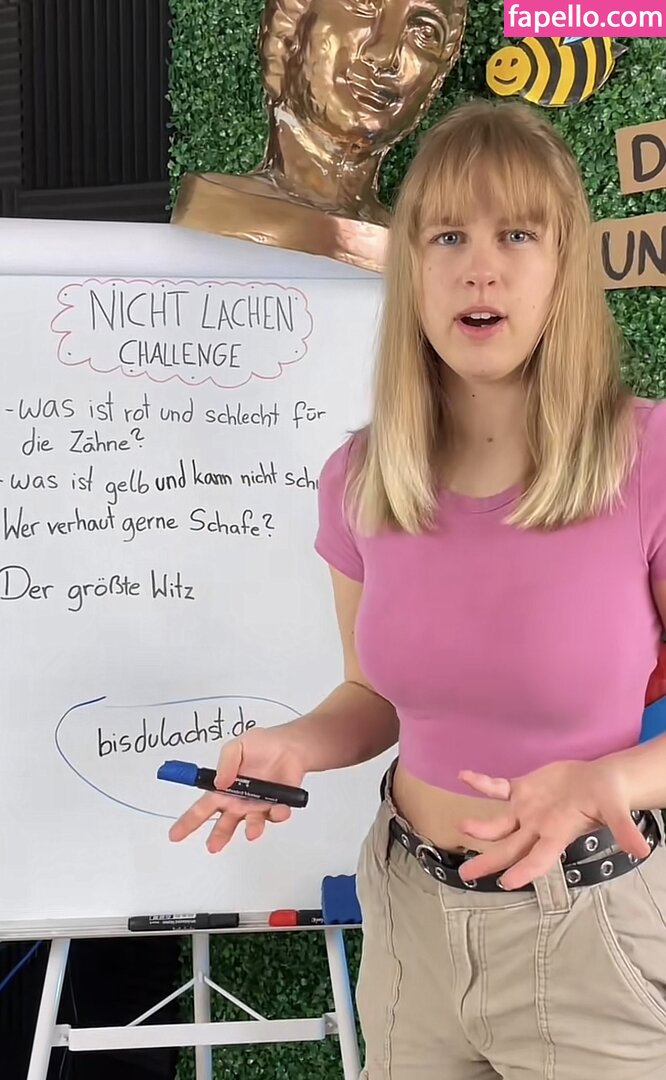 fapello.com
D
UN
NICHT LACHEN
CHALLENGE
- was ist rot und schlecht für
die Zähne?
- was ist gelb und kann nicht
Wer verhaut gerne Schafe?
Der größte Witz
bisdulachst.de